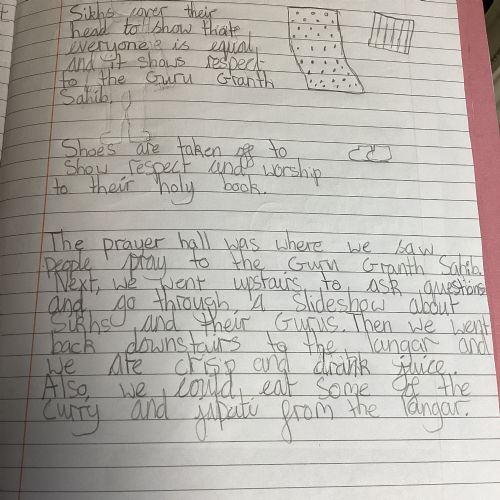 Sikhs cover their
head to show that
everyone is equal
and it shows respect
to the Guru Granth
Sahib.
Shoes are taken off to
show respect and worship
to their holy book.
The prayer hall was where we saw
people pray to the Guru Granth Sahib.
Next, we went upstairs to ask questions
and go through a slideshow about
Sikhs and their Gurus. Then we went
back downstairs to the langar and
we ate crisp and drank juice.
Also we could eat some of the
curry and japati from the langar.